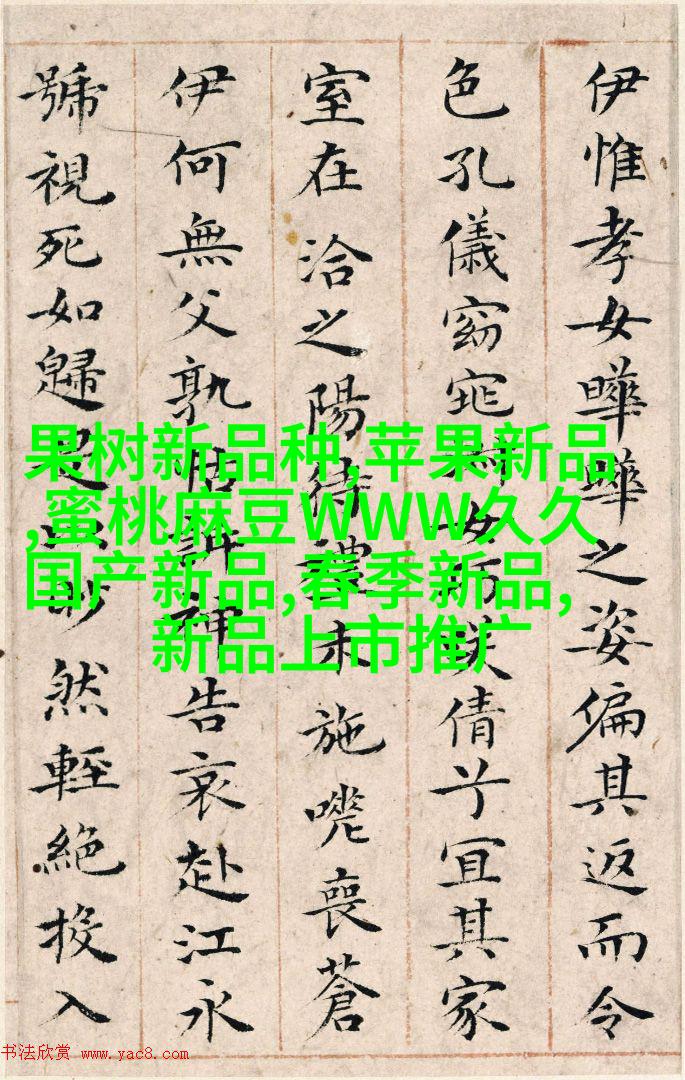 伊惟孝女曄曄之姿偏其返而令
色孔儀窈窕淑女巧笑倩兮宜其家
室在洽之陽待禮未施嗟喪蒼
伊何無父孰怙訴神告哀赴江永
號視死如歸是以眇然輕絕投入
果树新品种,苹果新品
,蜜桃麻豆WWW久久
国产新品,春季新品,
新品上市推广
书法欣赏 www.yac8.com